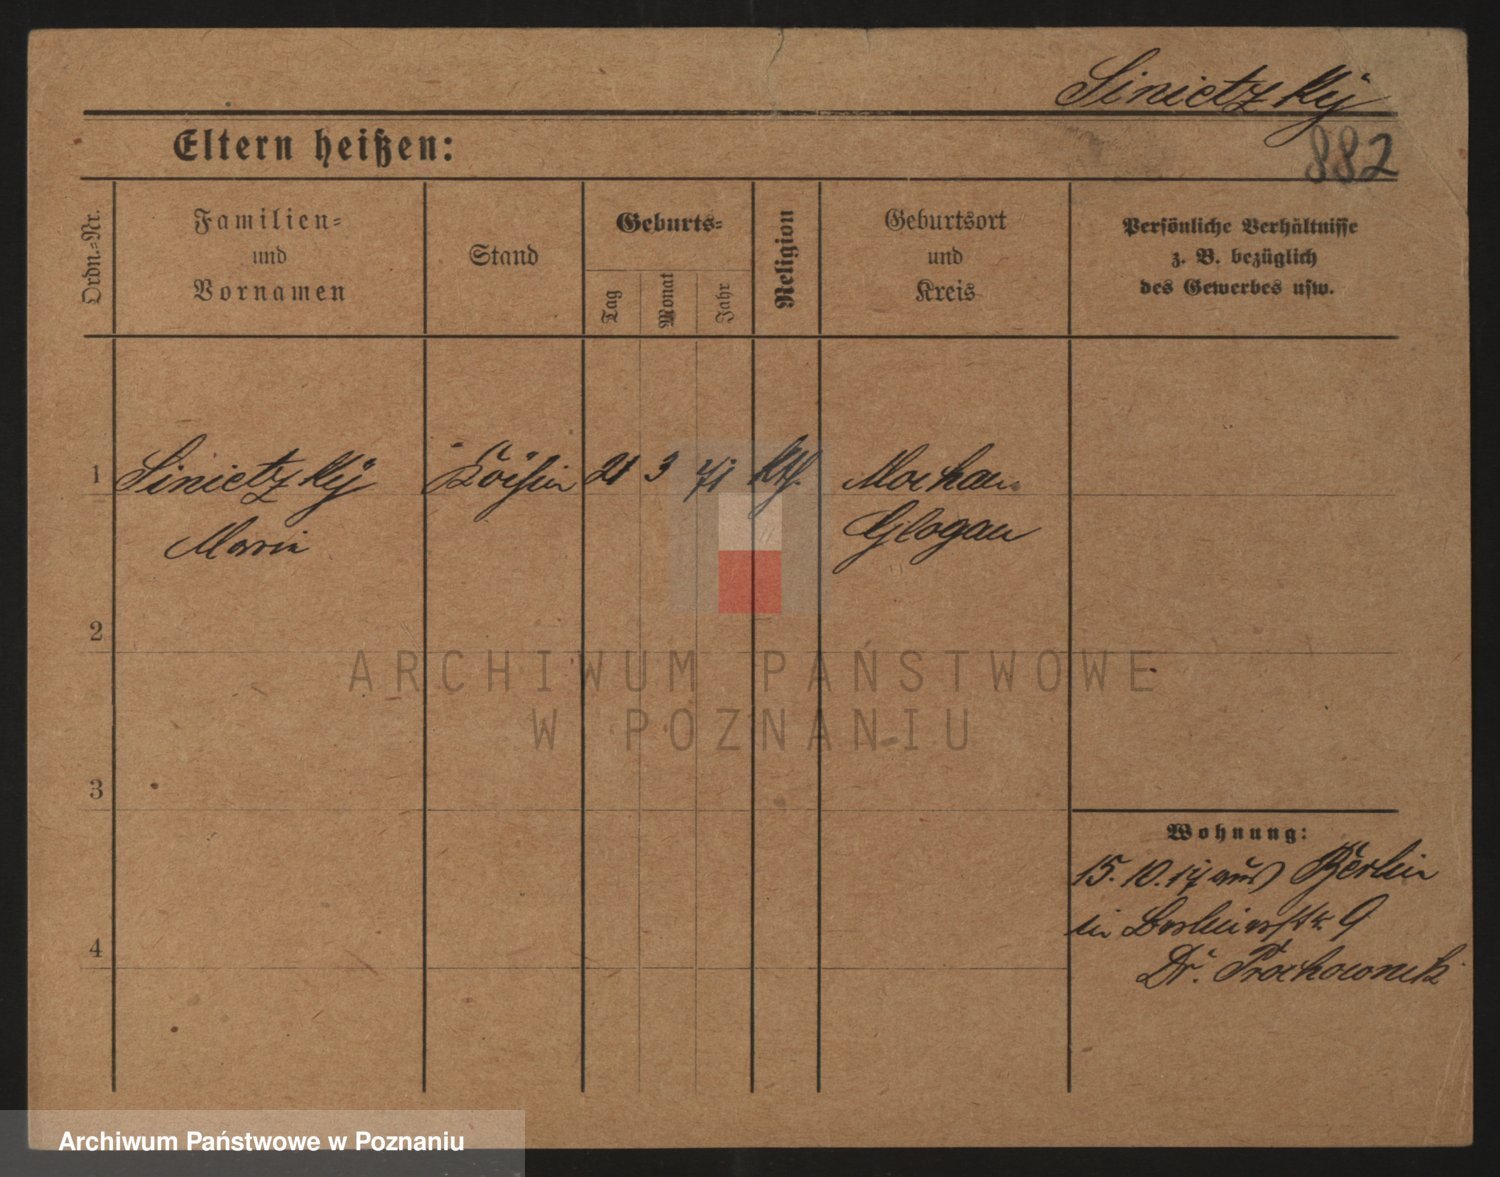 Sinietzky
882
Eltern heißen:
Ordn.=Nr.
Familien=
und
Vornamen
Stand
Geburts=
Tag
Monat
Jahr
Religion
Geburtsort
und
Kreis
Persönliche Verhältnisse
z. B. bezüglich
des Gewerbes usw.
1 Sinietzky Köchin 21 3 71 kth. Mochau
Marie Glogau
2
3
4
Wohnung:
15. 10. 17 aus Berlin
in Berlinerstr. 9
Dr. Prochownik
ARCHIWUM PAŃSTWOWE
W POZNANIU
Archiwum Państwowe w Poznaniu